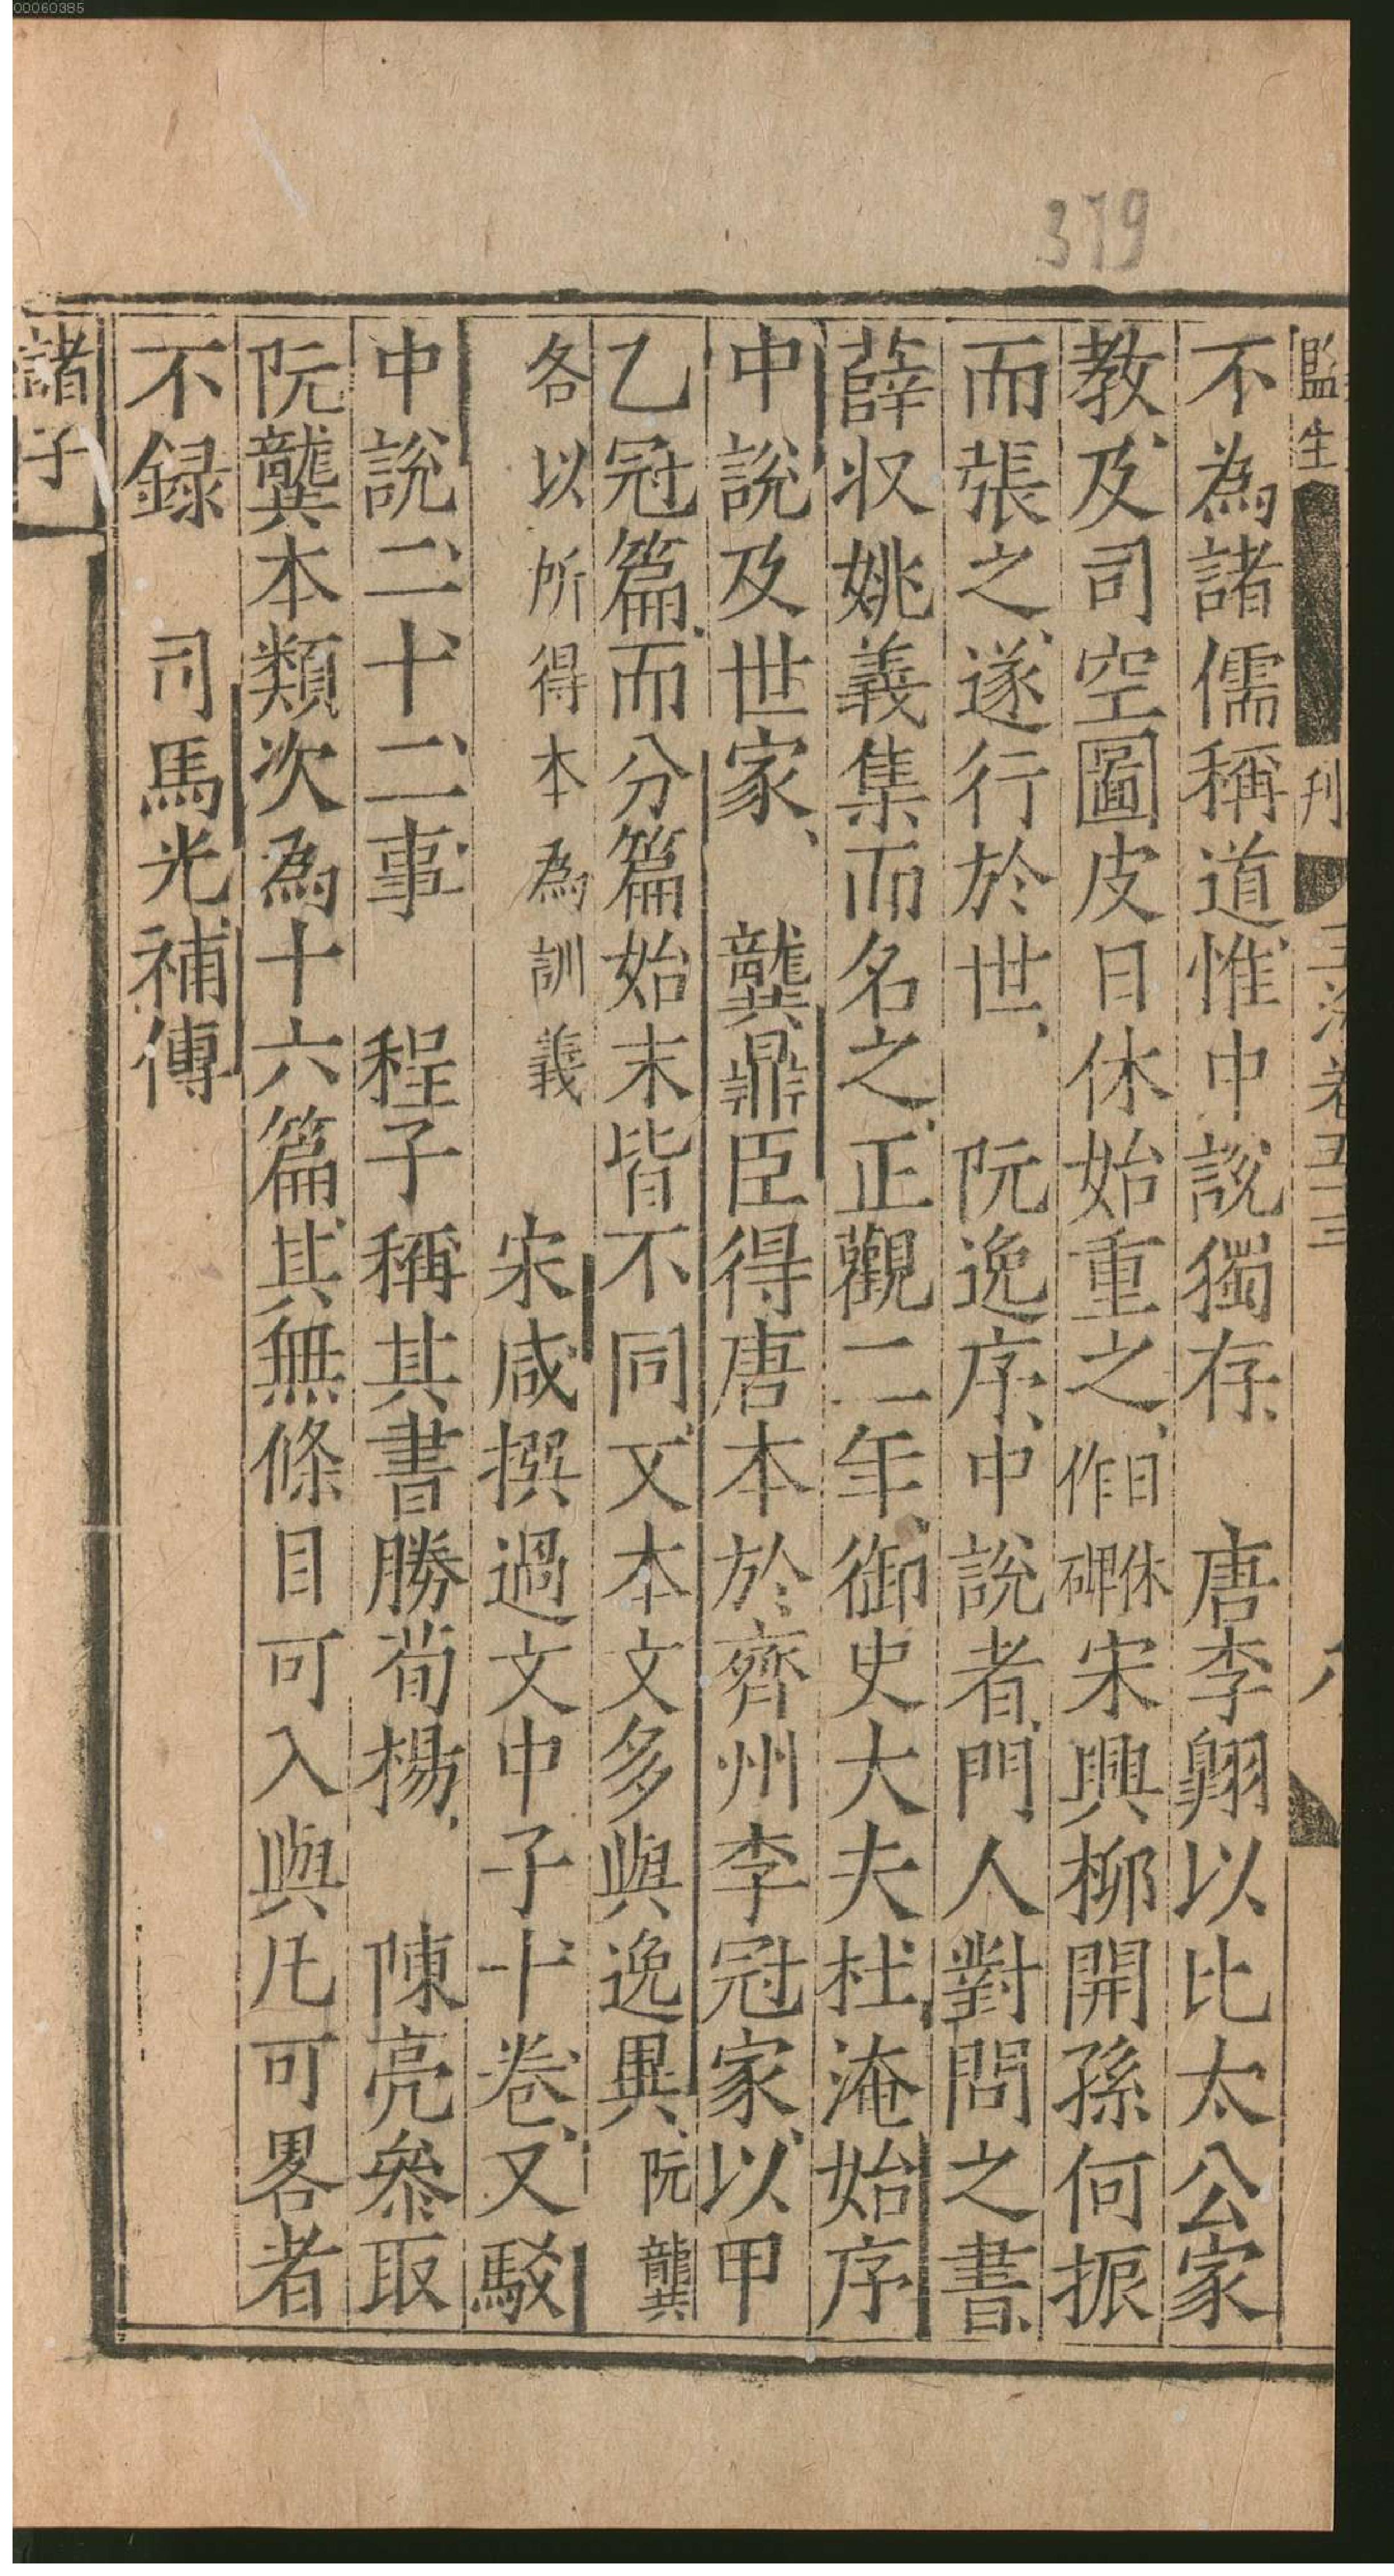 00060385
379
監生 刊 玉海卷五十三
不為諸儒稱道惟中說獨存、 唐李翺以比太公家
教及司空圖皮日休始重之、日休作碑宋興柳開孫何振
而張之遂行於世、 阮逸序、中說者門人對問之書、
薛収姚義集而名之、正觀二年、御史大夫杜淹始序
中說及世家、 龔鼎臣得唐本於齊州李冠家、以甲
乙冠篇、而分篇始末皆不同、又本文多與逸異、阮龔
各以所得本為訓義 宋咸撰過文中子十卷、又駁
中說二十二事 程子稱其書勝荀楊、 陳亮叅取
阮龔本類次為十六篇其無條目可入與凡可畧者
不録 司馬光補傳
諸子